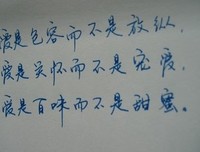 爱是包容而不是放纵,
爱是关怀而不是宠爱,
爱是百味而不是甜蜜。